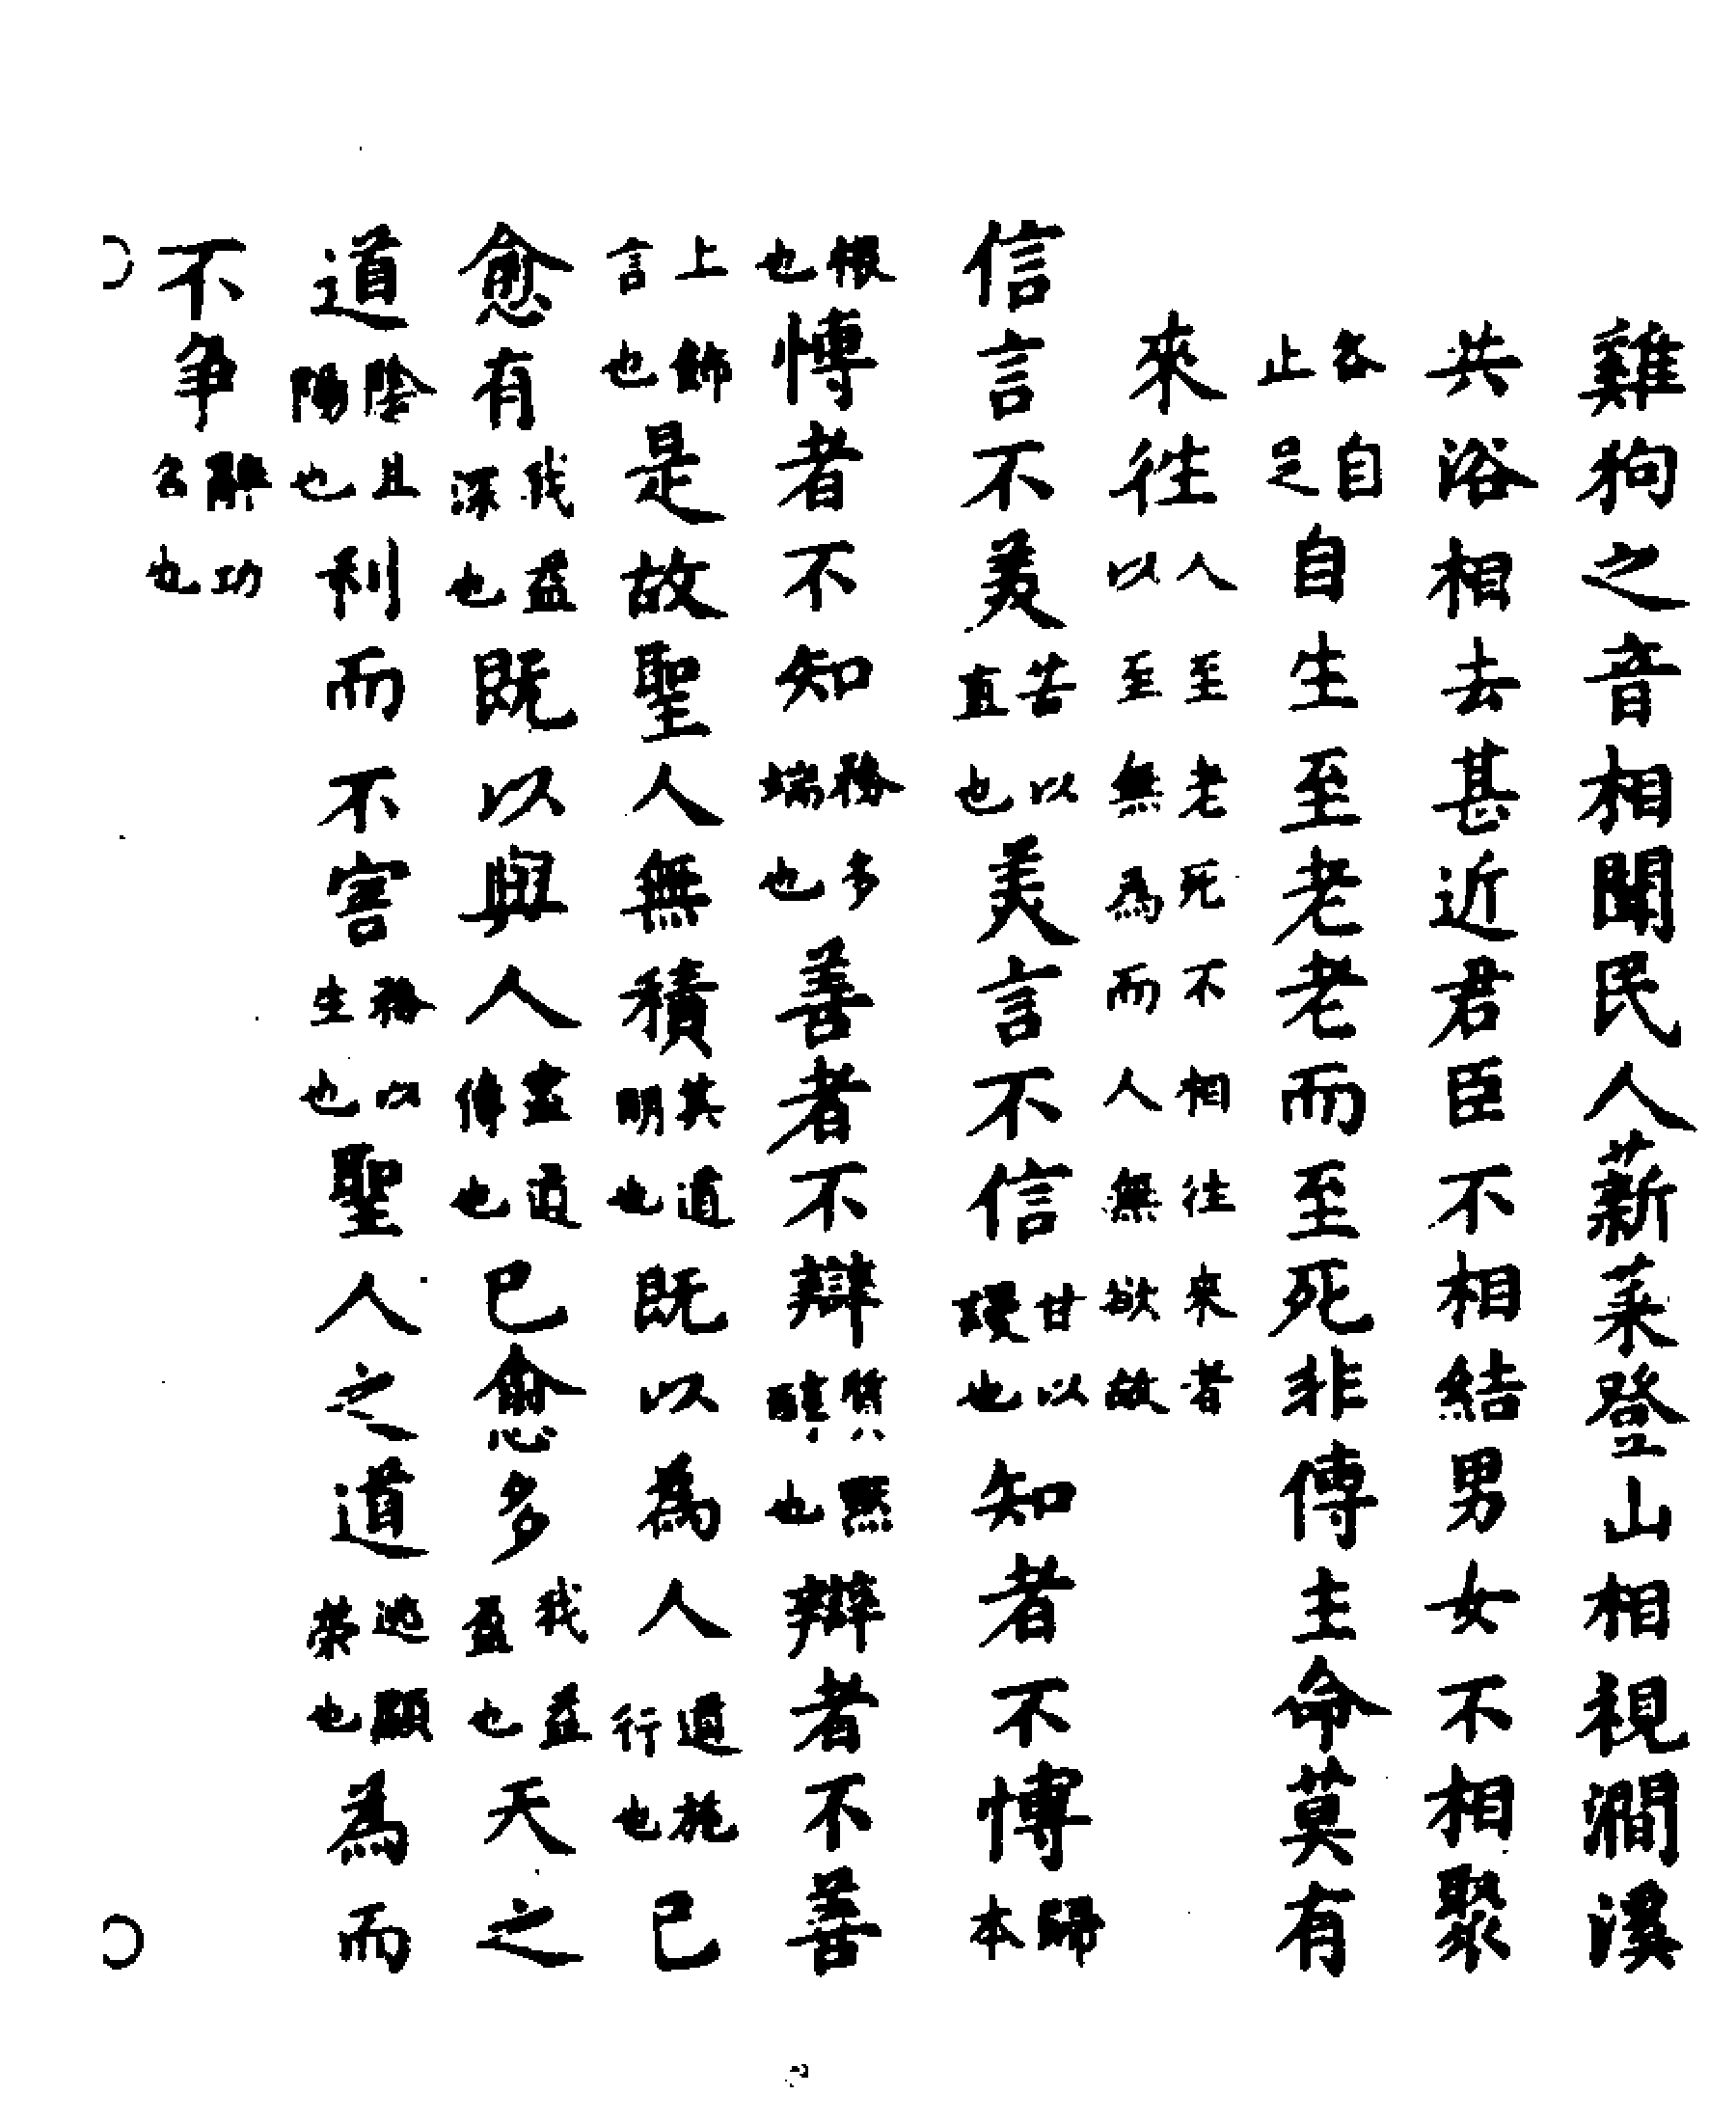 雞狗之音相聞民人薪菜登山相視澗溪
共浴相去甚近君臣不相結男女不相聚
各自止足自生至老老而至死非傳主命莫有
來往人至老死不相往來者以至無為而人無欲故
信言不美苦以直也美言不信甘以謾也知者不愽歸本
根也愽者不知務多端也善者不辯質默也辯者不善
上飾言也是故聖人無積其道明也既以為人道施行也已
愈有我益深也既以與人盡道傳也已愈多我益盈也天之
道陰且陽也利而不害務以生也聖人之道逃顯榮也為而
不爭辭功名也